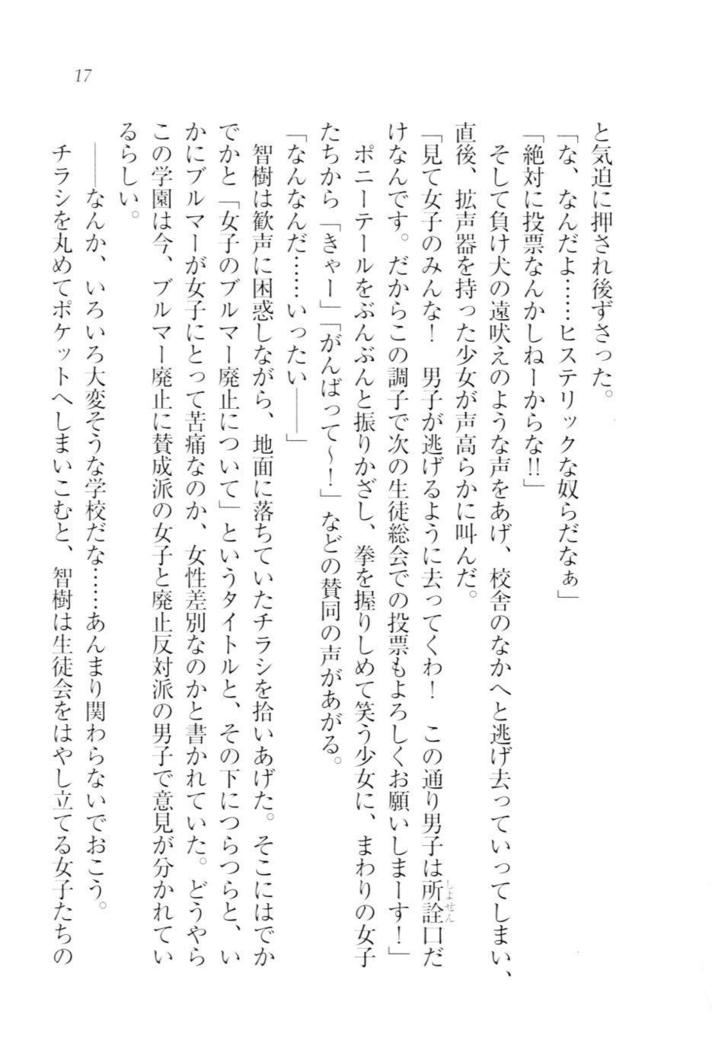 17
と気迫に押され後ずさった。
「な、なんだよ……ヒステリックな奴らだなぁ」
「絶対に投票なんかしねーからな!!」
そして負け犬の遠吠えのような声をあげ、校舎のなかへと逃げ去っていってしまい、
直後、拡声器を持った少女が声高らかに叫んだ。
「見て女子のみんな！　男子が逃げるように去ってくわ！　この通り男子は所詮口だ
しょせん
けなんです。だからこの調子で次の生徒総会での投票もよろしくお願いしまーす！」
ポニーテールをぶんぶんと振りかざし、拳を握りしめて笑う少女に、まわりの女子
たちから「きゃー」「がんばって～！」などの賛同の声があがる。
「なんなんだ……いったい――」
智樹は歓声に困惑しながら、地面に落ちていたチラシを拾いあげた。そこにはでか
でかと「女子のブルマー廃止について」というタイトルと、その下につらつらと、い
かにブルマーが女子にとって苦痛なのか、女性差別なのかと書かれていた。どうやら
この学園は今、ブルマー廃止に賛成派の女子と廃止反対派の男子で意見が分かれてい
るらしい。
――なんか、いろいろ大変そうな学校だな……あんまり関わらないでおこう。
チラシを丸めてポケットへしまいこむと、智樹は生徒会をはやし立てる女子たちの